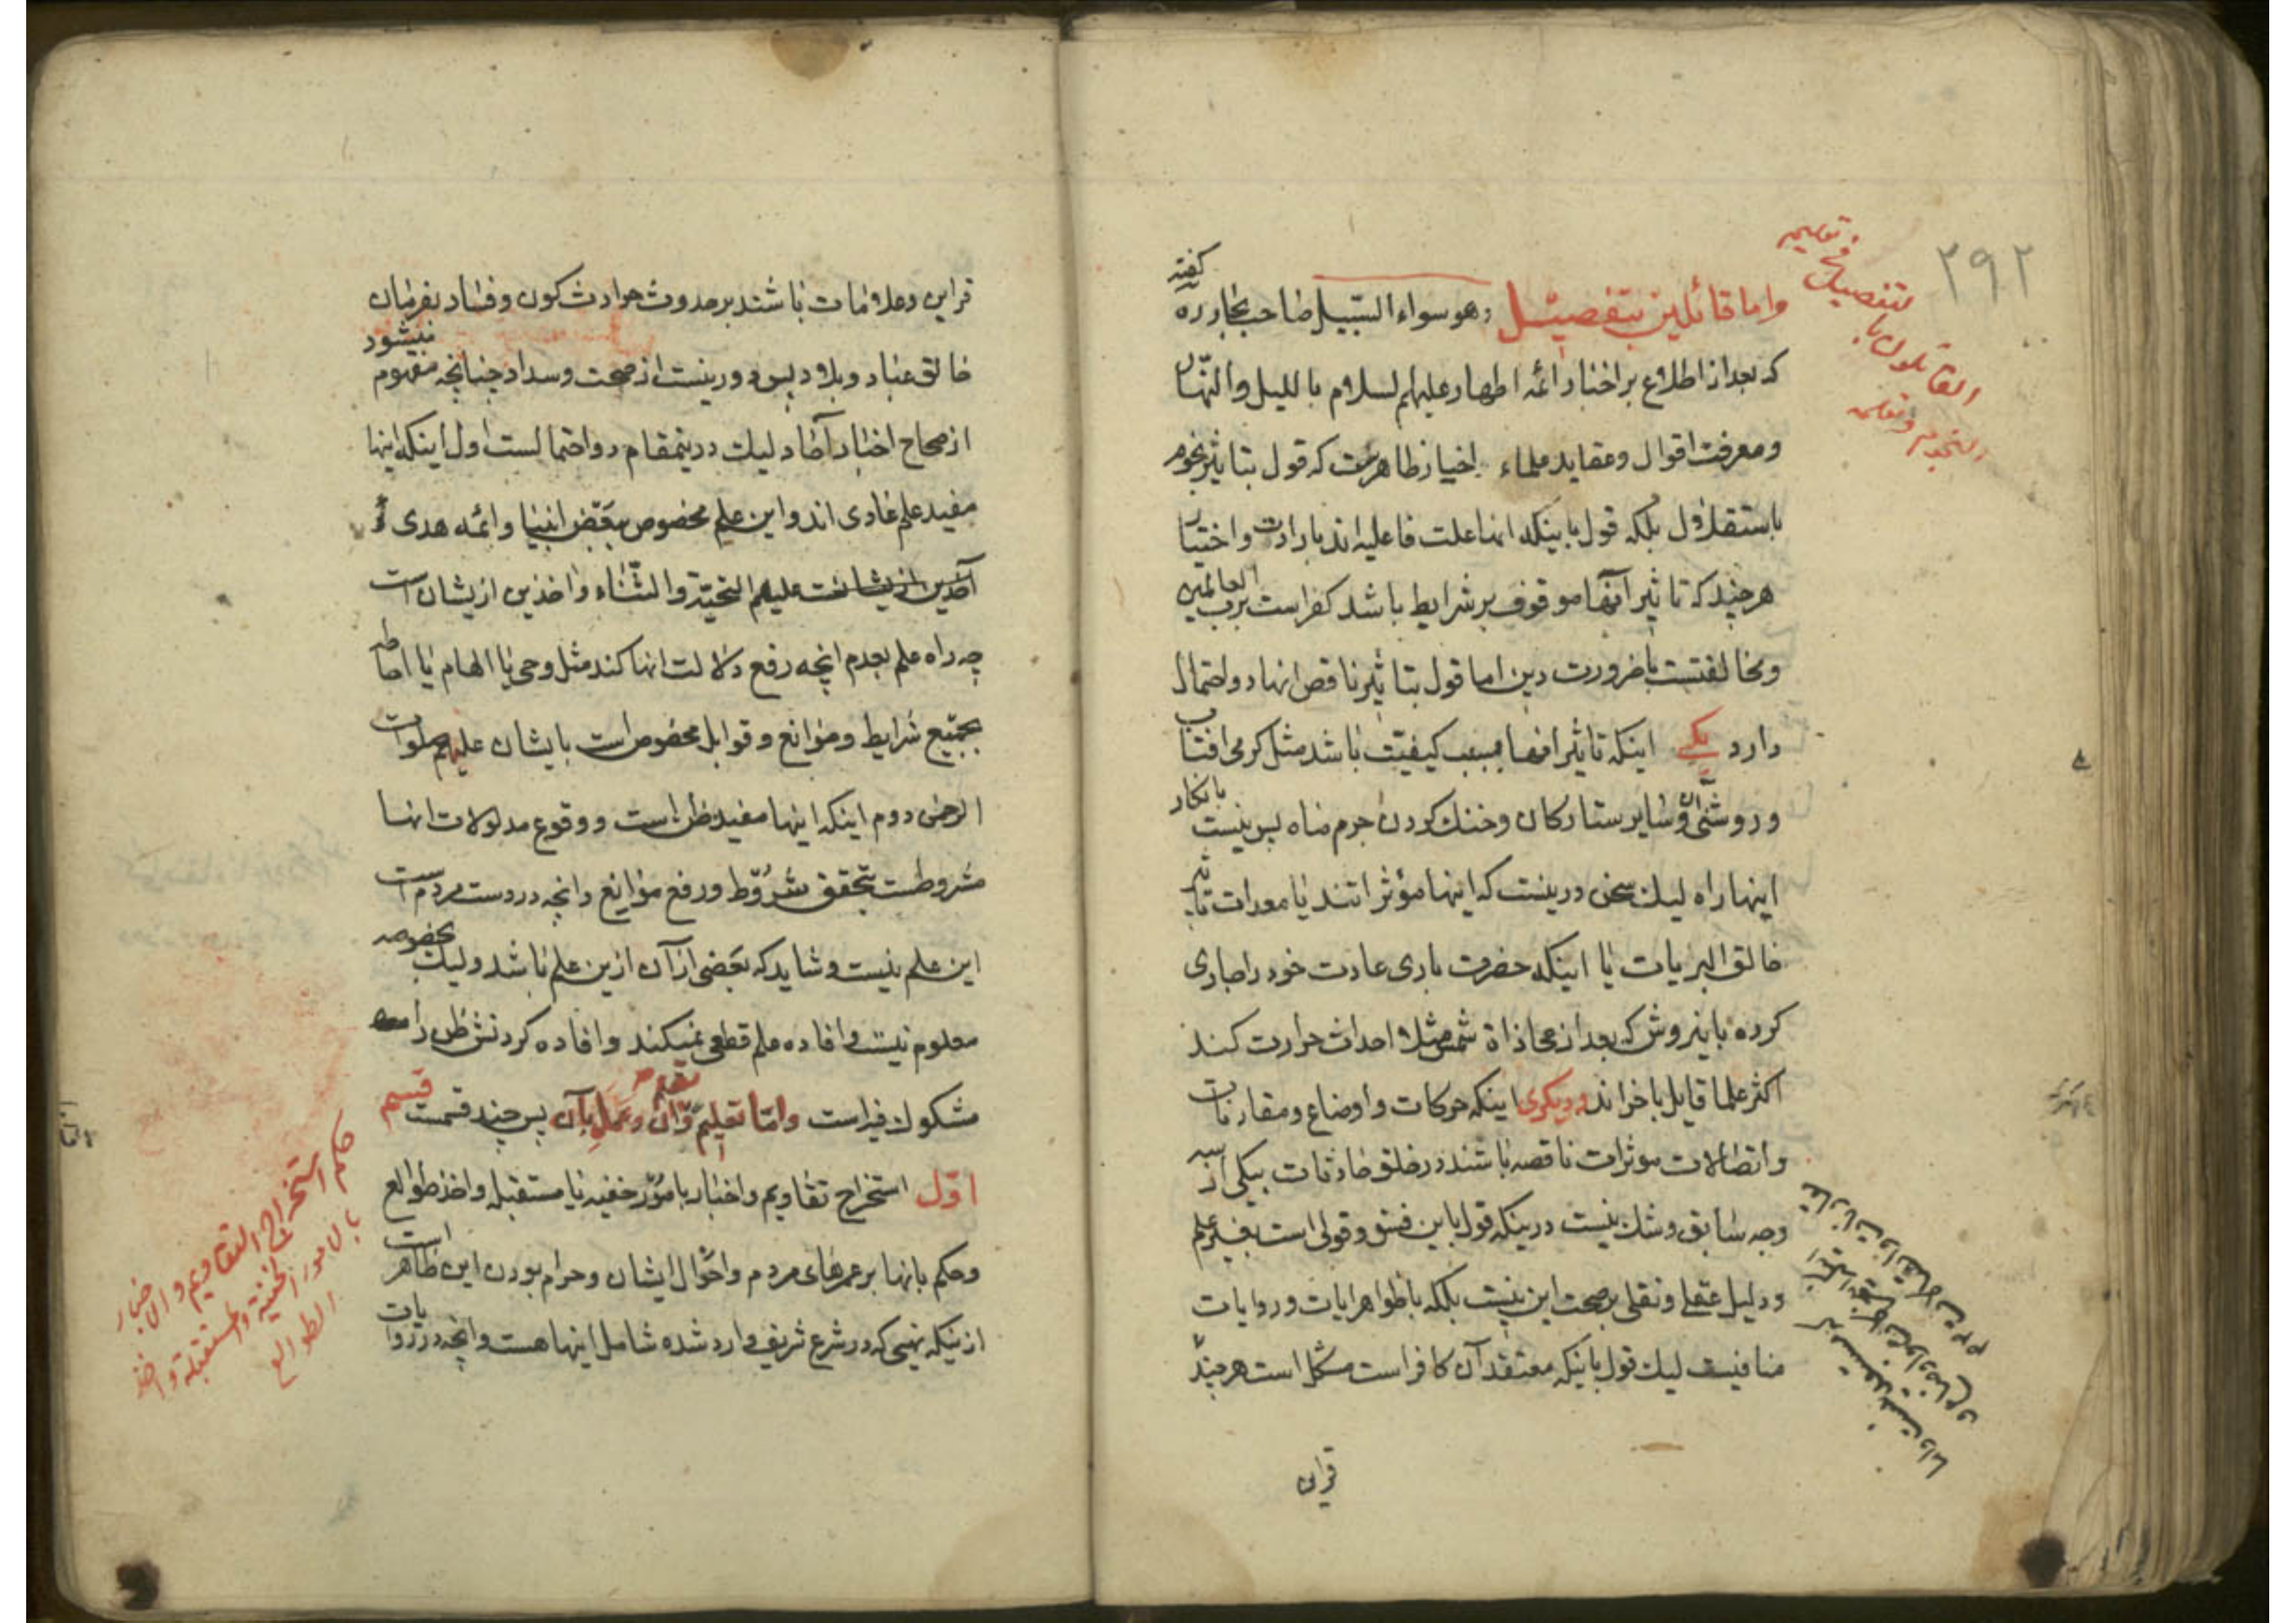 ۲۹۲
واما قائلین بتفصیل وهو سواء السبیل صاحب بحار ره گفته
که بعد از اطلاع بر اخبار ائمه اطهار علیهم لسلام باللیل والنهار
ومعرفت اقوال وعقاید علماء اخیار ظاهرست که قول بتاثیر نجوم
باستقلال بلکه قول باینکه انها علت فاعلیه اند بارادت واختیار
هرچند که تاثیر آنها موقوف بر شرایط باشد کفر است برب العالمین
ومخالفتست باضرورت دین اما قول بتاثیر ناقص انها دو احتمال
دارد یکی اینکه تاثیر انها بسبب کیفیت باشد مثل کرمی افتاب
وروشنی آن وسایر ستارکان وخنک کردن جرم ماه پس نیست بانکار
اینها راه لیک سخن درینست که اینها مؤثراتند یا معدات تاثیر
خالق البریات یا اینکه حضرت باری عادت خود را جاری
کرده باینروش که بعد از محاذاة شمس مثلا احداث حرارت کند
اکثر علما قایل باخراند ودیکری اینکه حرکات واوضاع ومقارنات
واتصالات موثرات ناقصه باشند در خلق حادثات بیکی از سه
وجه سابق وشک نیست درینکه قول باین فسق وقولی است بغیر علم
ودلیل عقلی ونقلی بر صحت این نیست بلکه با ظواهر ایات وروایات
منافیست لیک قول باینکه معتقد آن کافر است مشکل است هرچند
قراین
القائلون با
لتفصیل فی تعلیمه
النجوم وتعلمه
قراین وعلامات باشند بر حدوث حوادث کون وفساد بفرمان
خالق عباد وبلاد پس دور نیست از صحت وسداد چنانچه مفهوم میشود
از صحاح اخبار آحاد لیک درینمقام دو احتمالست اول اینکه اینها
مفید علم عادی اند واین علم مخصوص ببعض انبیا وائمه هدی و
آخذین ازیشانست علیهم التحیة والثناء واخذین ازیشان است
چه راه علم بعدم انچه رفع دلالت انها کند مثل وحی یا الهام یا احاطه
بجمیع شرایط وموانع وقوابل مخصوص است بایشان علیهم صلوات
الرحمن دوم اینکه اینها مفید ظن است ووقوع مدلولات انها
مشروطست بتحقق شروط ورفع موانع وانچه در دست مردم است
این علم نیست وشاید که بعضی از آن ازین علم باشد ولیک بخصوصه
معلوم نیست وافاده علم قطعی نمیکند وافاده کردنش ظن را
مشکوک فیه است واما تعلیم وتعلم آن وعمل بآن پس چند قسمت قسم
اول استخراج تقاویم واخبار بامور خفیه یا مستقبله واخذ طوالع
وحکم بانها بر عمرهای مردم واحوال ایشان وحرام بودن این ظاهر است
ازینکه نهیی که در شرع شریف وارد شده شامل اینها هست وانچه در روایات
حکم استخراج التقاویم والاخبار
بالامور الخفیة والمستقبلة واخذ
الطوالع